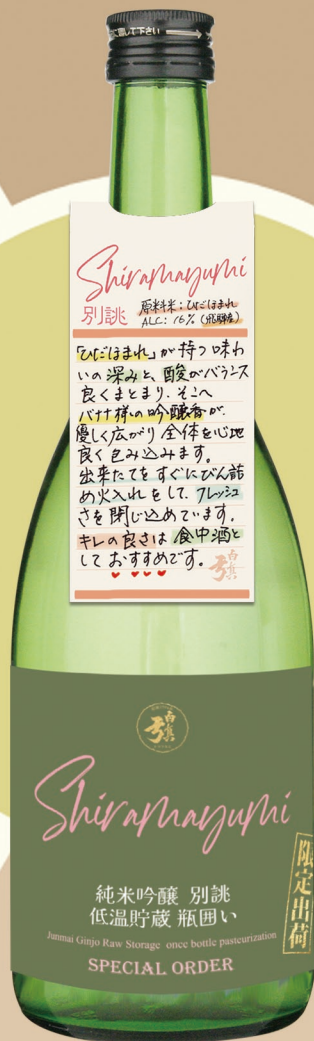 に回して下さい
Shiramayumi
別誂
原料米:ひだほまれ
ALC:16%(飛騨産)
「ひだほまれ」が持つ味わ
いの深みと、酸がバランス
良くまとまり、そこへ
バナナ様の吟醸香が、
優しく広がり全体を心地
良く包み込みます。
出来たてをすぐにびん詰
め火入れをして、フレッシュ
さを閉じ込めています。
キレの良さは食中酒と
しておすすめです。
白真弓
白真弓
Shiramayumi
限定出荷
純米吟醸 別誂
低温貯蔵 瓶囲い
Junmai Ginjo Raw Storage once bottle pasteurization
SPECIAL ORDER